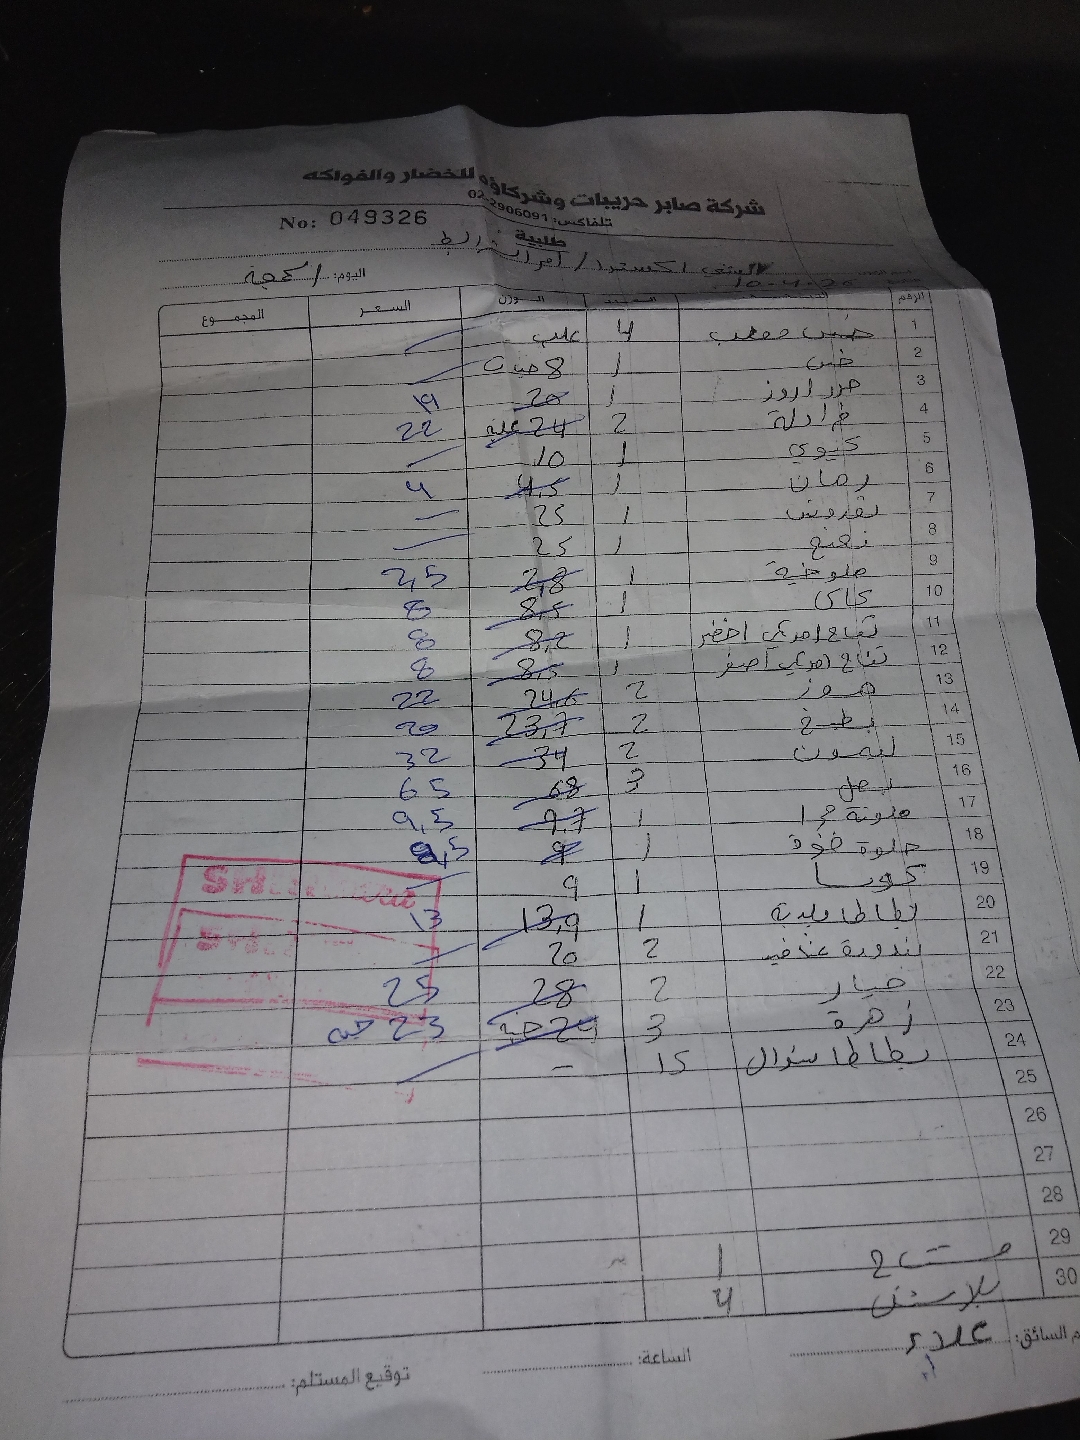 شركة صابر حريبات وشركاؤه للخضار والفواكه
تلفاكس: 02-2906091
No: 049326
طلبية
اليوم: الجمعة
الرقم السعر المجموع
1 خس معلب 4 علب
2 خس 1 8 حبات
3 جزر اروز 1 20 19
4 فرادلة 2 24 علبة 22
5 كيوي 1 10
6 رمان 1 4,5 4
7 بقدونس 1 25
8 نعنع 1 25
9 ملوخية 1 2,8 2,5
10 كاكا 1 8,5 8
11 تفاح امريكي اخضر 1 8,2 8
12 تفاح امريكي اصفر 1 8,5 8
13 موز 2 24,6 22
14 بطيخ 2 23,7 20
15 ليمون 2 34 32
16 بصل 3 68 65
17 ملونة حمرا 1 9,7 9,5
18 حلوة 1 9
19 كوسا 1 9
20 بطاطا حلوة 1 13,9 13
21 بندورة عنقود 2 20
22 خيار 2 28 25
23 زهرة 3 24 حبة 23 حبة
24 بطاطا شوال 15 -
25
26
27
28
29 مشتاح 1
30 بلاستيك 4
السائق: علاء
الساعة:
توقيع المستلم: